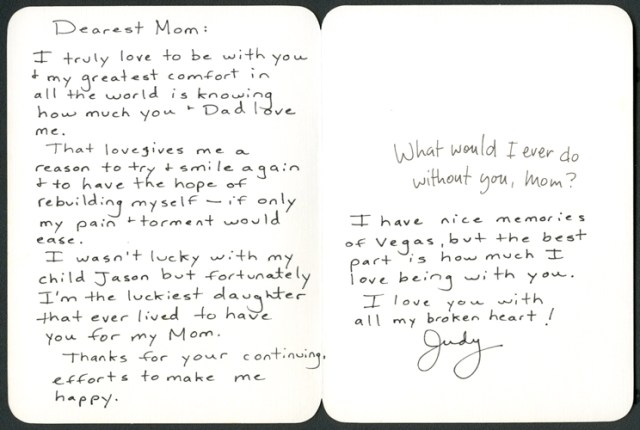 Dearest Mom:
I truly love to be with you
+ my greatest comfort in
all the world is knowing
how much you + Dad love
me.
That love gives me a
reason to try + smile again
+ to have the hope of
rebuilding myself — if only
my pain + torment would
ease.
I wasn't lucky with my
child Jason but fortunately
I'm the luckiest daughter
that ever lived to have
you for my Mom.
Thanks for your continuing
efforts to make me
happy.
What would I ever do
without you, Mom?
I have nice memories
of Vegas, but the best
part is how much I
love being with you.
I love you with
all my broken heart!
Judy